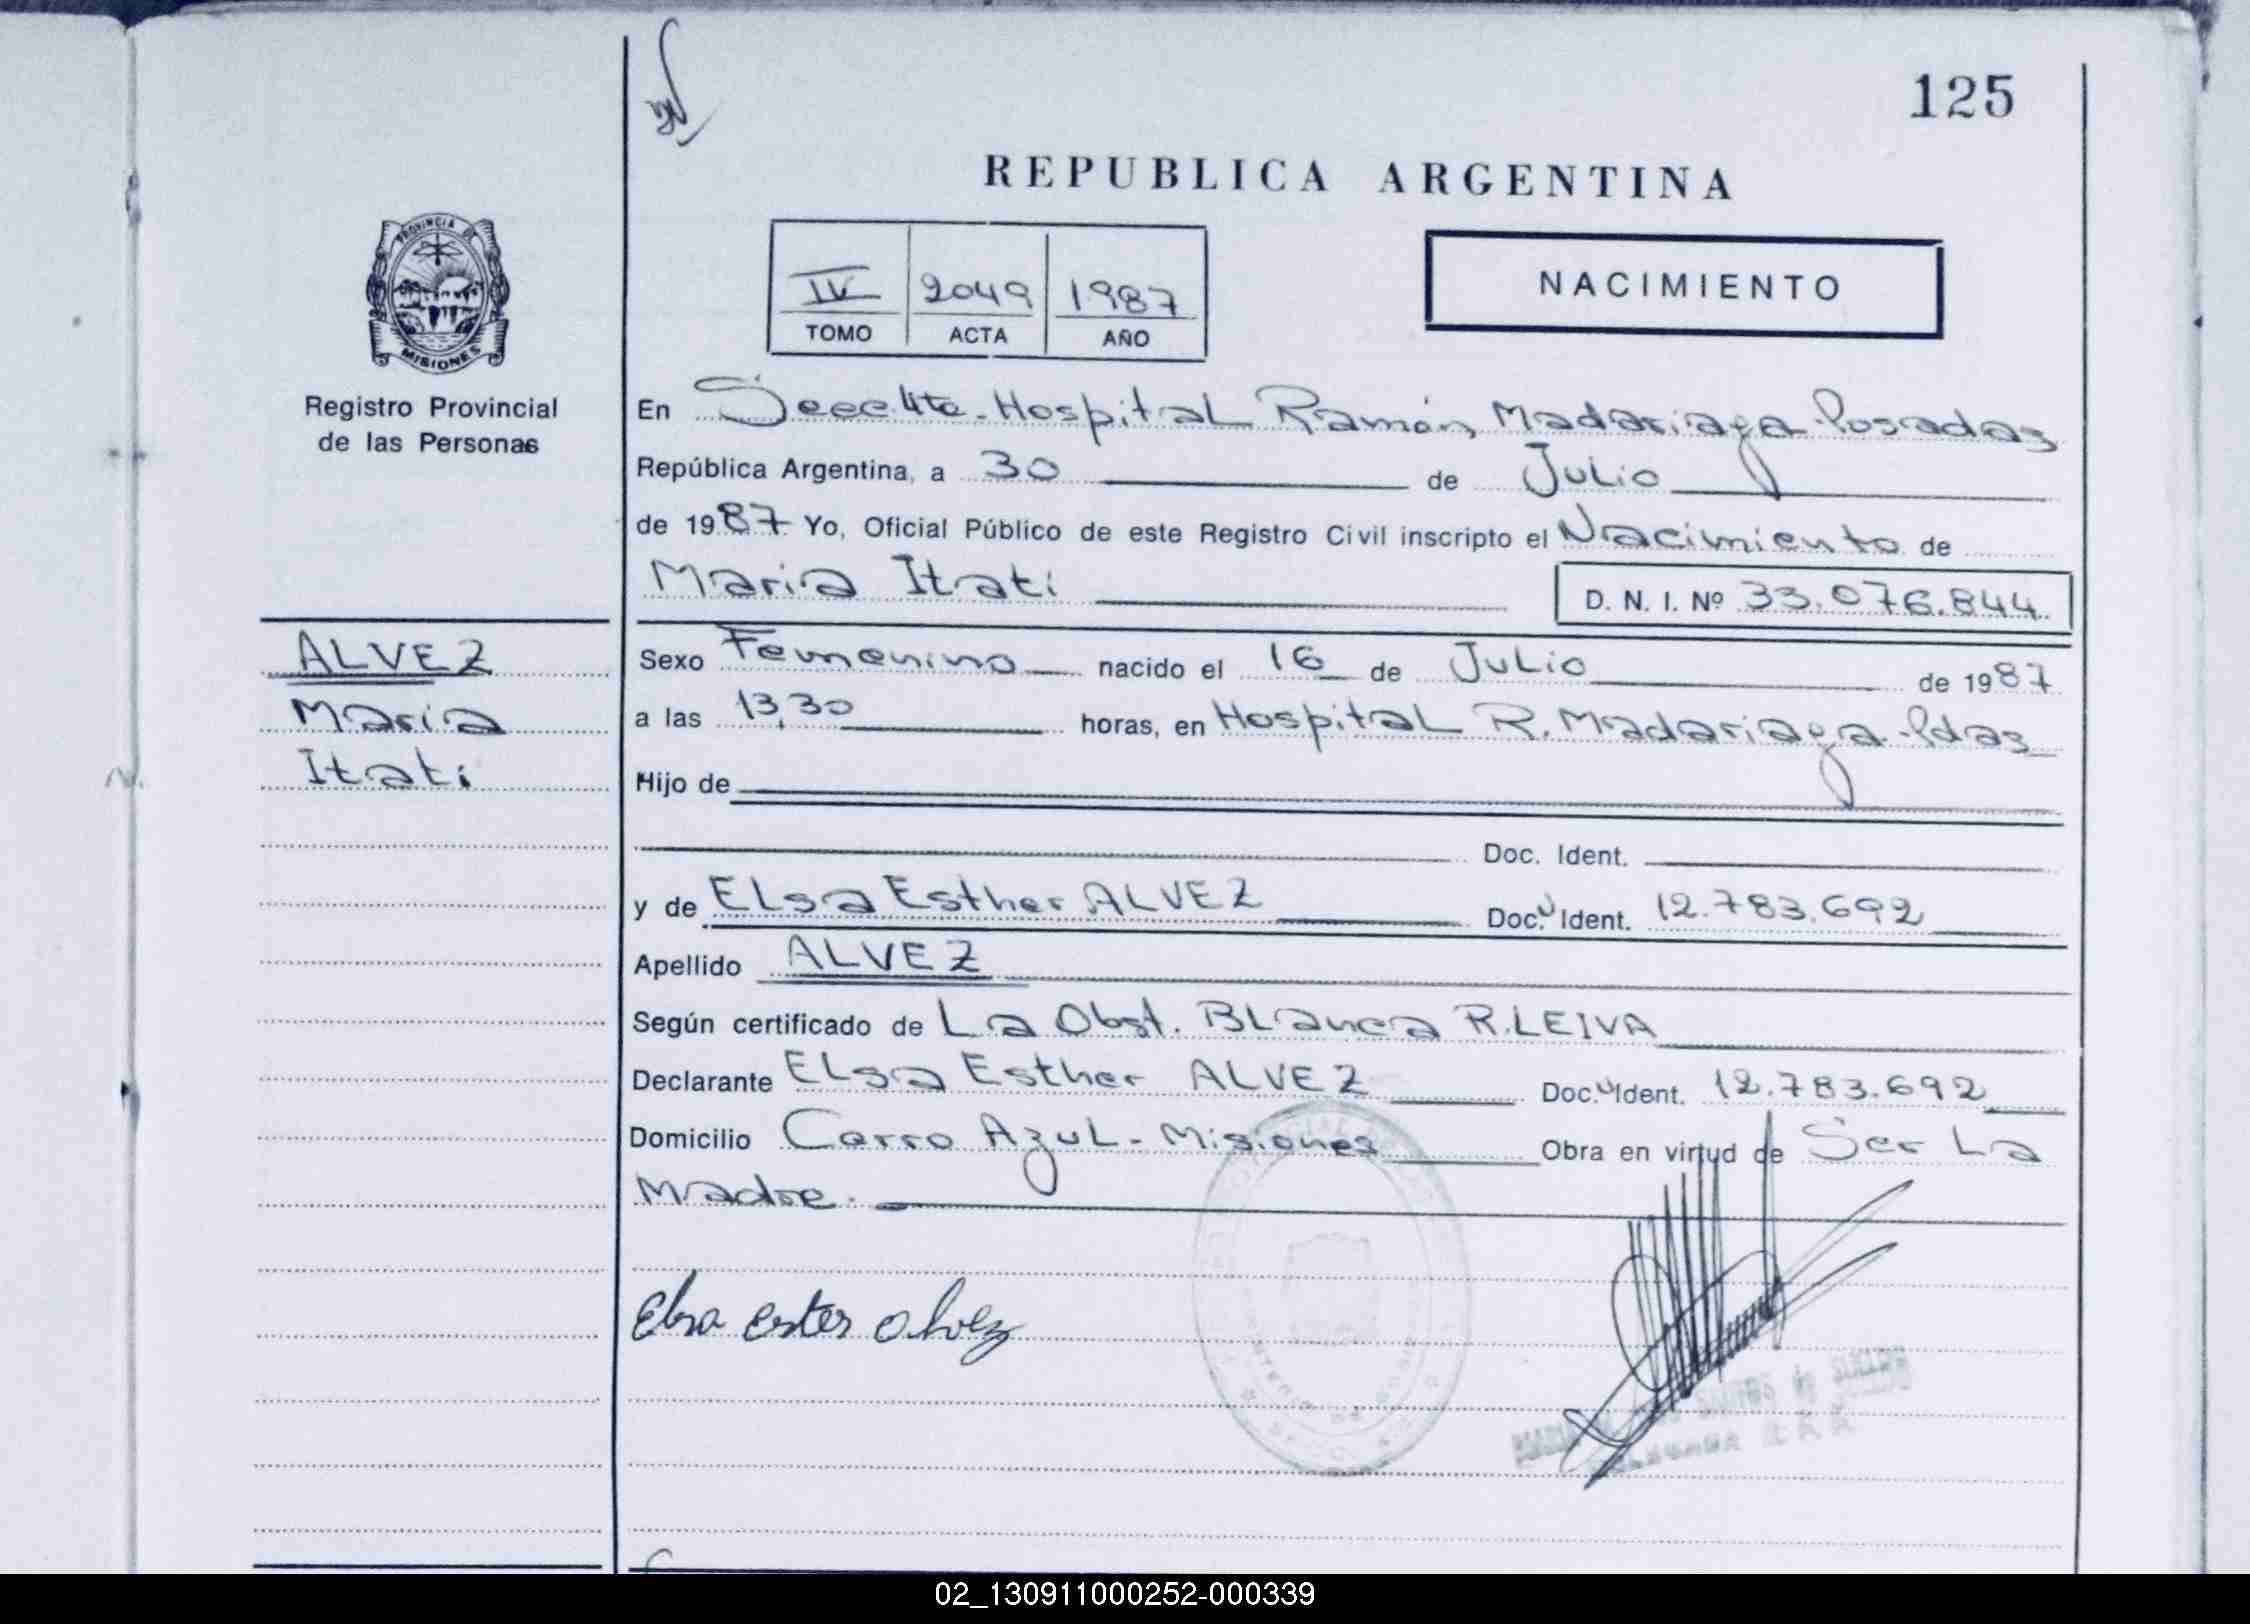 125
REPUBLICA ARGENTINA
PROVINCIA DE
MISIONES
Registro Provincial
de las Personas
IV 2049 1987
TOMO ACTA AÑO
NACIMIENTO
En Secc. 4ta. - Hospital Ramón Madariaga - Posadas
República Argentina, a 30 de Julio
de 1987 Yo, Oficial Público de este Registro Civil inscripto el Nacimiento de
Maria Itati D. N. I. Nº 33.076.844
ALVEZ
Maria
Itati
Sexo Femenino nacido el 16 de Julio de 1987
a las 13,30 horas, en Hospital R. Madariaga - Pdas
Hijo de
Doc. Ident.
y de Elsa Esther ALVEZ Doc. U Ident. 12.783.692
Apellido ALVEZ
Según certificado de La Obst. Blanca R. LEIVA
Declarante Elsa Esther ALVEZ Doc. U Ident. 12.783.692
Domicilio Cerro Azul - Misiones Obra en virtud de Ser La
Madre.
Elsa ester alvez
02_130911000252-000339